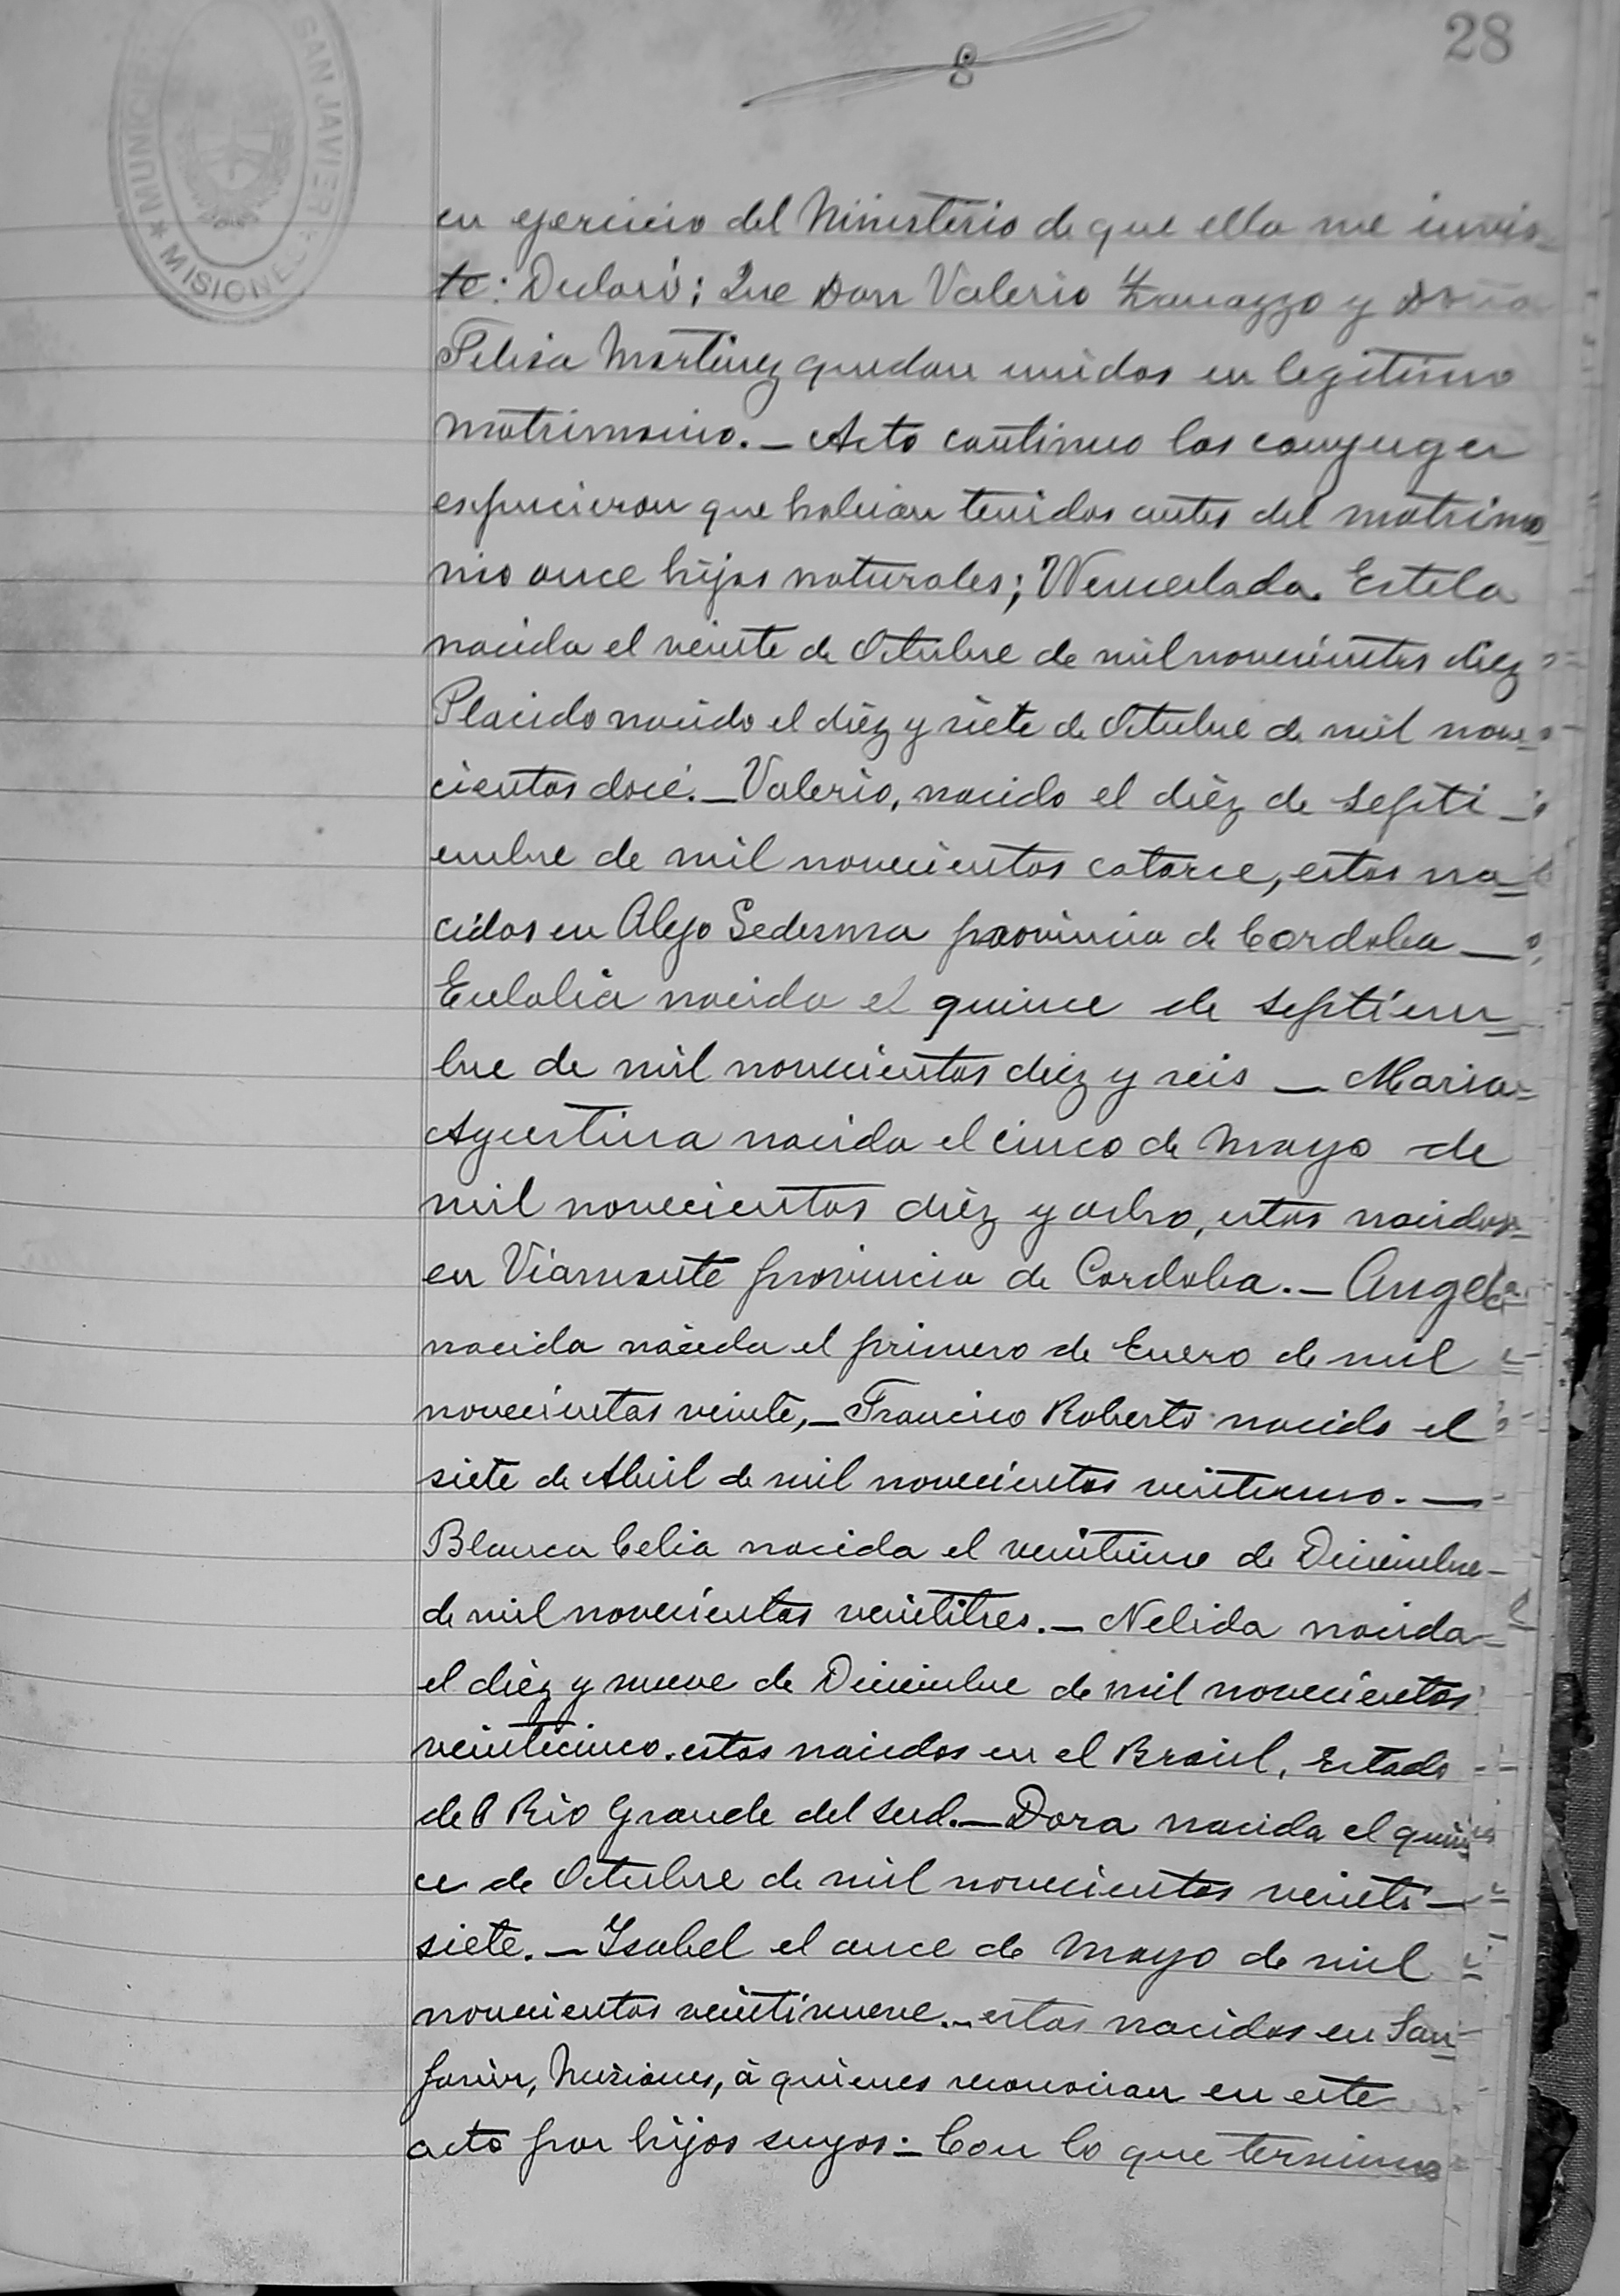 28
8
MUNICIP SAN JAVIER
* MISIONES
en ejercicio del Ministerio de que ella me invis-
te: Declaró; Que Don Valerio y Doña
Felisa Martinez quedan unidos en legitimo
matrimonio. — Acto continuo los conyuges
espucieron que habian tenidos antes del matrimo
nio once hijos naturales; Wenceslada Estela
nacida el veinte de Octubre de mil novecientos diez
Placido nacido el diéz y siete de Octubre de mil nove-
cientos doce. — Valerio, nacido el diéz de Septi -
embre de mil novecientos catorce, estos na-
cidos en Alejo Sedesma provincia de Cordoba —
Eulalia nacida el quince de Septiem-
bre de mil novecientos diez y seis — Maria
Agustina nacida el cinco de Mayo de
mil novecientos diéz y ocho, estos nacidos
en Viamonte provincia de Cordoba. — Angela
nacida nacida el primero de Enero de mil
novecientos veinte, — Francisco Roberto nacido el
siete de Abril de mil novecientos veintiuno. —
Blanca Celia nacida el veintiuno de Diciembre
de mil novecientos veintitres. — Nelida nacida
el diéz y nueve de Diciembre de mil novecientos
veinticinco. estos nacidos en el Brasil, Estado
del Rio Grande del Sud. — Dora nacida el quin
ce de Octubre de mil novecientos veinti-
siete. — Isabel el once de Mayo de mil
novecientos veintinueve. — estas nacidas en San
Javier, Misiones, á quienes reconocian en este
acto por hijos suyos. — Con lo que termino